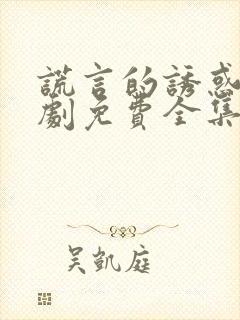 謊言的誘惑
劇免費全集
吳凱庭